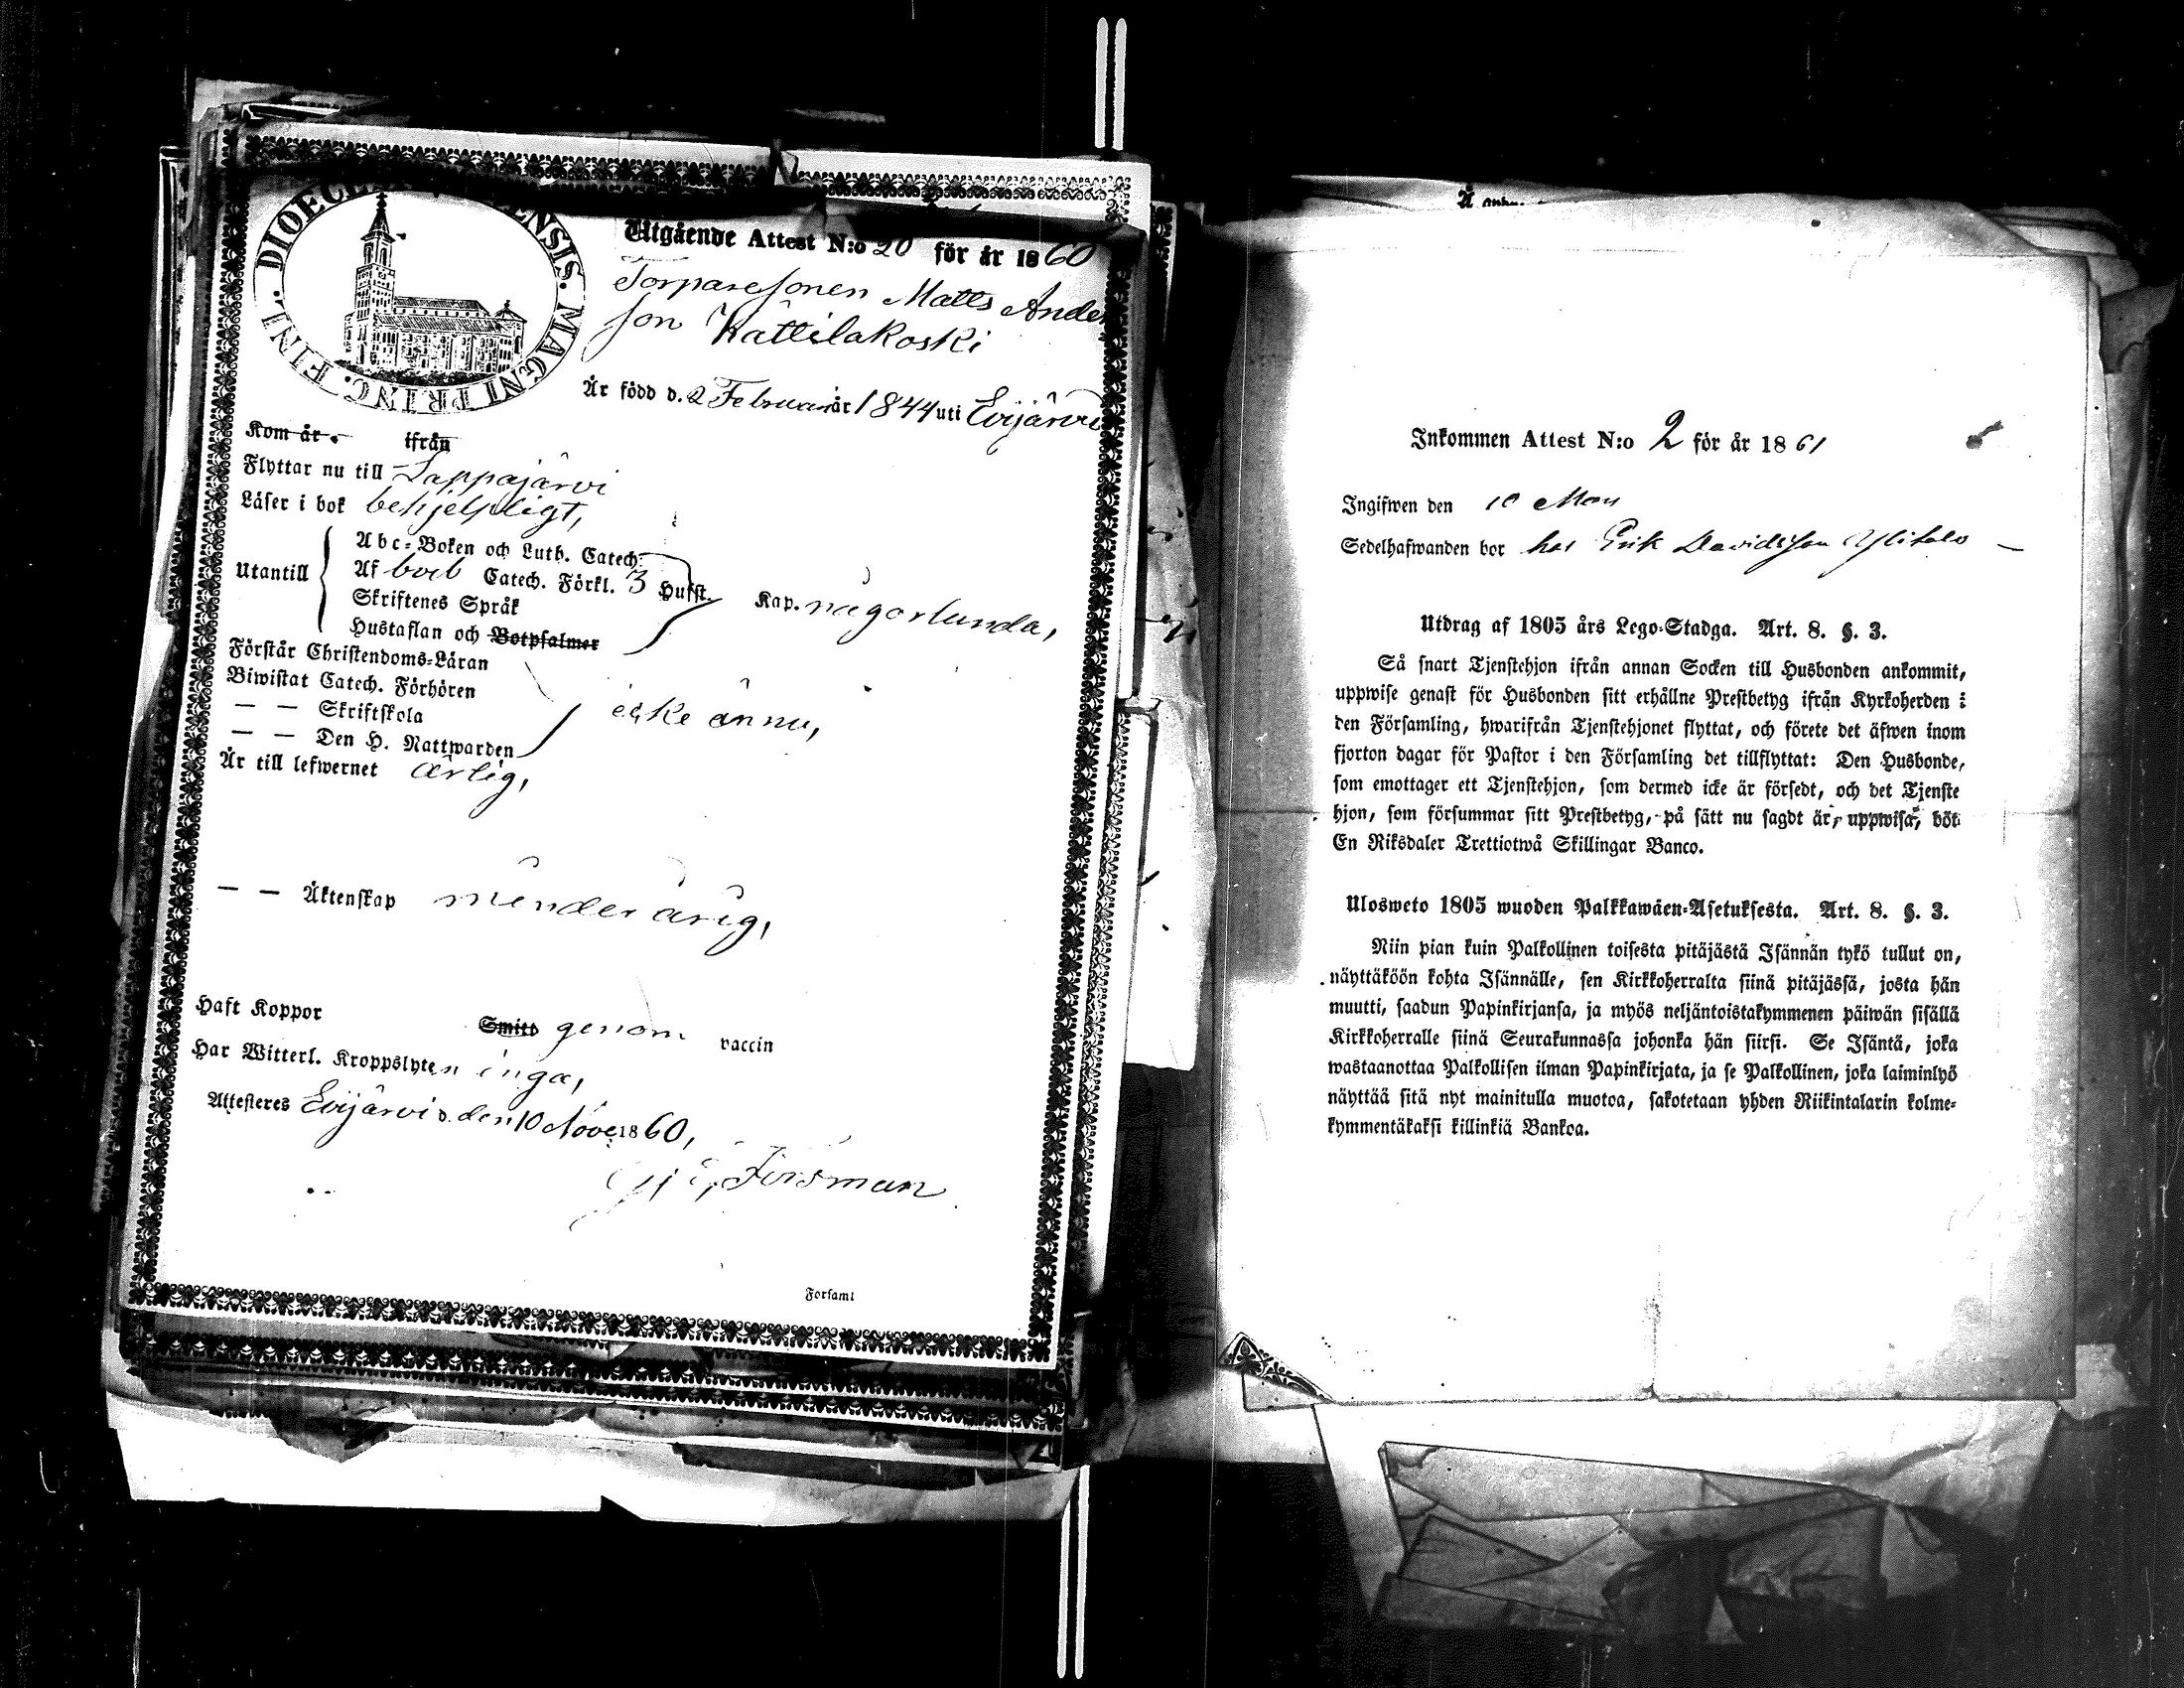 DIOECE ENSIS. MAGNI PRINC. FINL.
Utgående Attest N:o 20 för år 1860
Torparesonen Matts Ander
son Kattilakoski
Är född d. 2 Februari år 1844 uti Evijärvi
Kom år ifrån
Flyttar nu till Lappajärvi
Läser i bok behjelpligt,
Utantill
Abc-Boken och Luth. Catech.
Af Catech. Förkl. 3 Hufst. Kap. någorlunda,
Skriftenes Språk
Hustaflan och Botpsalmer
Förstår Christendoms-Läran
Biwistat Catech. Förhören
— — Skriftskola
icke ännu,
— — Den H. Nattwarden
Är till lefwernet ärlig,
— — Äktenskap minderårig,
Haft Koppor Smitt genom vaccin
Har Witterl. Kroppslyten inga,
Attesteres Evijärvi d. den 10 Nove 1860,
Forsman
Forsaml
Inkommen Attest N:o 2 för år 1861
Ingifwen den 10 
Sedelhafwanden bor hos Erik Davidsson Ylitalo
Utdrag af 1805 års Lego-Stadga. Art. 8. §. 3.
Så snart Tjenstehjon ifrån annan Socken till Husbonden ankommit,
uppwise genast för Husbonden sitt erhållne Prestbetyg ifrån Kyrkoherden i
den Församling, hwarifrån Tjenstehjonet flyttat, och förete det äfwen inom
fjorton dagar för Pastor i den Församling det tillflyttat: Den Husbonde,
som emottager ett Tjenstehjon, som dermed icke är försedt, och det Tjenste
hjon, som försummar sitt Prestbetyg, på sätt nu sagdt är, uppwisa, böt
En Riksdaler Trettiotwå Skillingar Banco.
Ulosweto 1805 wuoden Palkkawäen-Asetuksesta. Art. 8. §. 3.
Niin pian kuin Palkollinen toisesta pitäjästä Isännän tykö tullut on,
näyttäköön kohta Isännälle, sen Kirkkoherralta siinä pitäjässä, josta hän
muutti, saadun Papinkirjansa, ja myös neljäntoistakymmenen päiwän sisällä
Kirkkoherralle siinä Seurakunnassa johonka hän siirsi. Se Isäntä, joka
wastaanottaa Palkollisen ilman Papinkirjata, ja se Palkollinen, joka laiminlyö
näyttää sitä nyt mainitulla muotoa, sakotetaan yhden Riikintalarin kolme-
kymmentäkaksi killinkiä Bankoa.